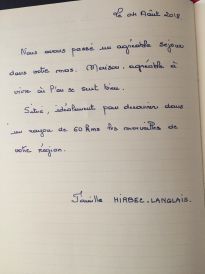 Le 04 Août 2018
Nous avons passé un agréable séjour
dans votre mas. Maison, agréable à
vivre où l'on se sent bien.
Situé, idéalement pour découvrir dans
un rayon de 60 kms les merveilles de
votre région.
Famille HIRBEC-LANGLAIS.